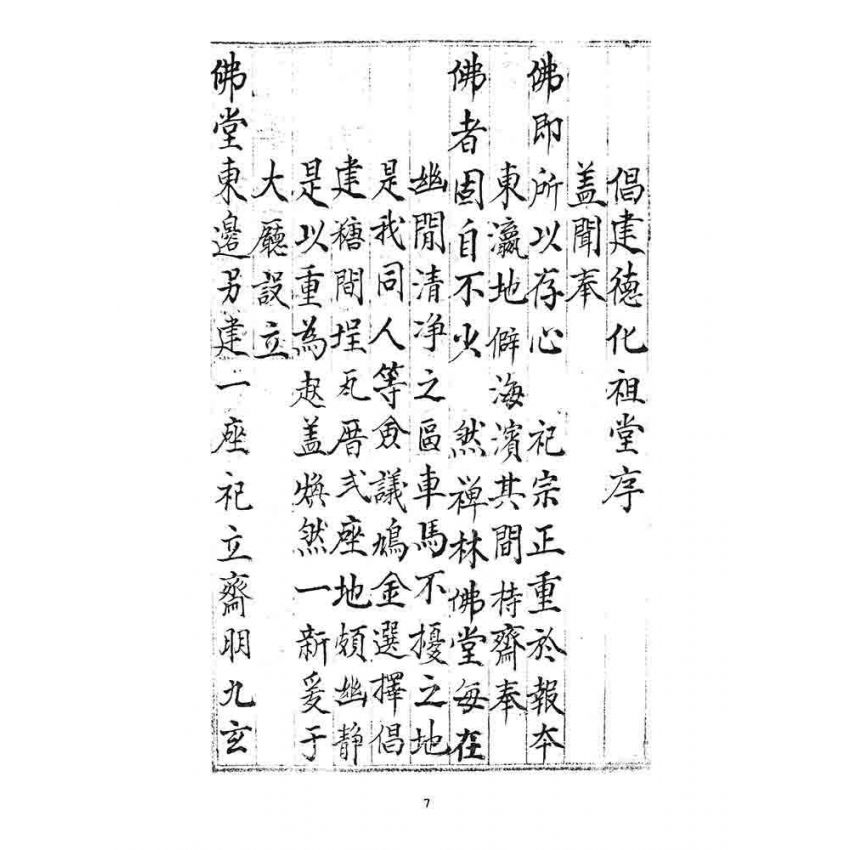 倡建德化祖堂序
盖聞奉
佛即所以存心 祀宗正重於報夲
東瀛地僻海濱其間持齋奉
佛者固自不少 然禅林佛堂每在
幽閒清净之區車馬不擾之地
是我同人等僉議鳩金選擇倡
建糖間埕瓦厝弍座地頗幽静
是以重為起盖煥然一新爰于
大廳設立
佛堂東邊另建一座祀立齋朋九玄
7